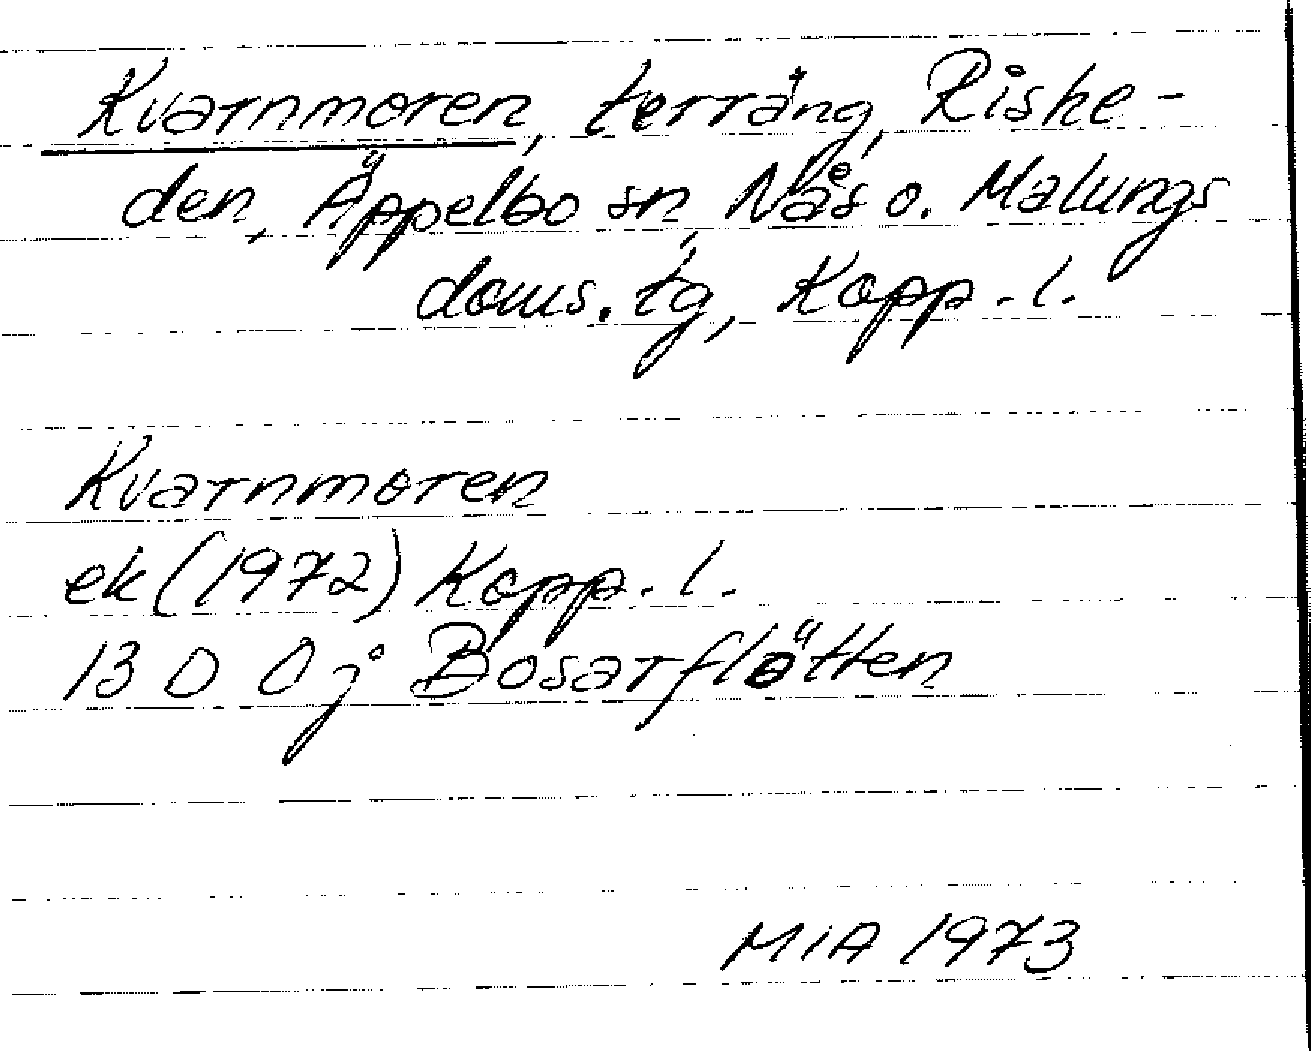 Kvarnmoren, terräng, Riske-
den, Äppelbo sn, Nås o. Malungs
doms. tg, Kopp. l.
Kvarnmoren
ek (1972) Kopp. l.
13 D 0 j Bosarflötten
MIA 1973